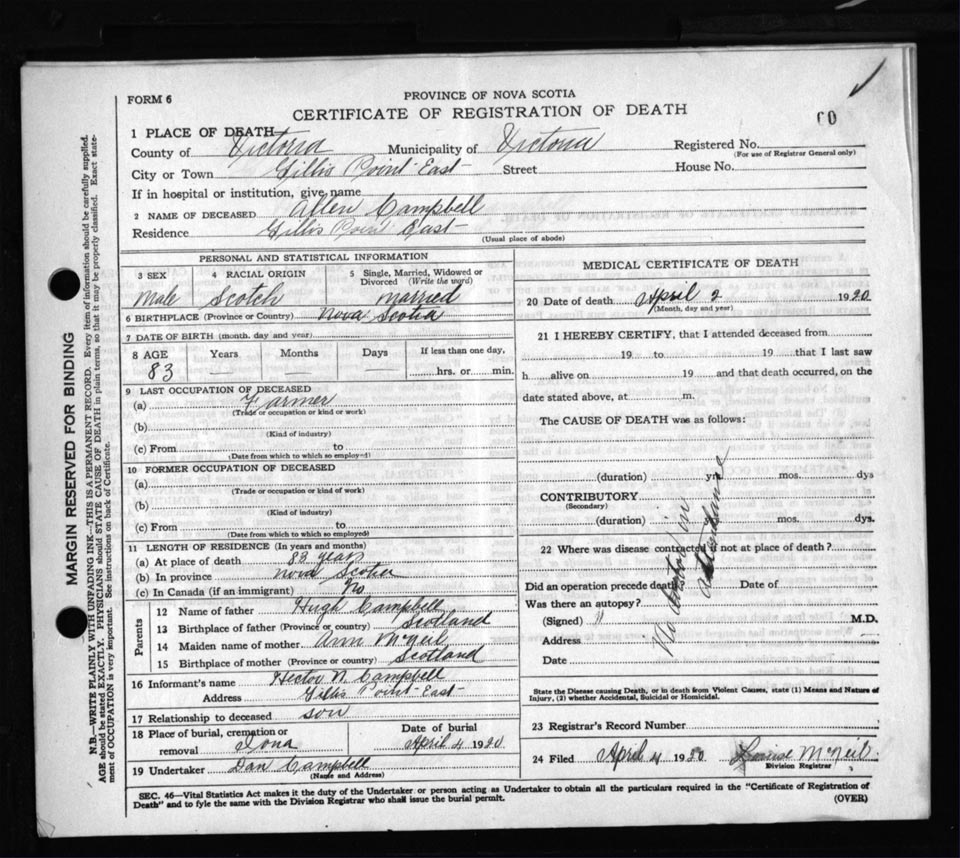 FORM 6
PROVINCE OF NOVA SCOTIA
CERTIFICATE OF REGISTRATION OF DEATH
1 PLACE OF DEATH—
County of Victoria Municipality of Victoria Registered No.
(For use of Registrar General only)
City or Town Gillis Point East Street House No.
If in hospital or institution, give name
2 NAME OF DECEASED Allen Campbell
Residence Gillis Point East
(Usual place of abode)
PERSONAL AND STATISTICAL INFORMATION
3 SEX 4 RACIAL ORIGIN 5 Single, Married, Widowed or Divorced (Write the word)
Male Scotch Married
6 BIRTHPLACE (Province or Country) Nova Scotia
7 DATE OF BIRTH (month, day and year)
8 AGE Years Months Days If less than one day,
83 — — — hrs. or min.
9 LAST OCCUPATION OF DECEASED
(a) Farmer
(Trade or occupation or kind of work)
(b)
(Kind of industry)
(c) From to
(Date from which to which so employed)
10 FORMER OCCUPATION OF DECEASED
(a)
(Trade or occupation or kind of work)
(b)
(Kind of industry)
(c) From to
(Date from which to which so employed)
11 LENGTH OF RESIDENCE (In years and months)
(a) At place of death 83 years
(b) In province Nova Scotia
(c) In Canada (if an immigrant) No
Parents
12 Name of father Hugh Campbell
13 Birthplace of father (Province or country) Scotland
14 Maiden name of mother Ann McNeil
15 Birthplace of mother (Province or country) Scotland
16 Informant's name Hector N. Campbell
Address Gillis Point East
17 Relationship to deceased son
18 Place of burial, cremation or removal Iona Date of burial April 4 1930
19 Undertaker Dan Campbell
(Name and Address)
MEDICAL CERTIFICATE OF DEATH
20 Date of death April 2 1930
(Month, day and year)
21 I HEREBY CERTIFY, that I attended deceased from
19 to 19 that I last saw
h alive on 19 and that death occurred, on the
date stated above, at m.
The CAUSE OF DEATH was as follows:
(duration) yrs. mos. dys
CONTRIBUTORY
(Secondary)
(duration) mos. dys.
22 Where was disease contracted if not at place of death?
Did an operation precede death Date of
Was there an autopsy?
(Signed) M.D.
Address
Date
No Doctor in attendance
State the Disease causing Death, or in death from Violent Causes, state (1) Means and Nature of
Injury, (2) whether Accidental, Suicidal or Homicidal.
23 Registrar's Record Number
24 Filed April 4 1930 McNeil
Division Registrar
SEC. 46—Vital Statistics Act makes it the duty of the Undertaker or person acting as Undertaker to obtain all the particulars required in the "Certificate of Registration of
Death" and to fyle the same with the Division Registrar who shall issue the burial permit. (OVER)
MARGIN RESERVED FOR BINDING
N.B.—WRITE PLAINLY WITH UNFADING INK—THIS IS A PERMANENT RECORD. Every item of information should be carefully supplied.
AGE should be stated EXACTLY. PHYSICIANS should STATE CAUSE OF DEATH in plain terms, so that it may be properly classified. Exact state-
ment of OCCUPATION is very important. See instructions on back of Certificate.